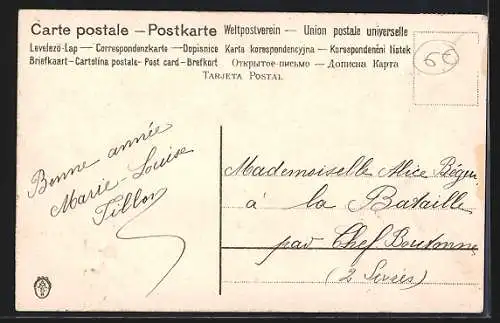 Carte postale — Postkarte Weltpostverein — Union postale universelle
Levelező-Lap — Correspondenzkarte — Dopisnice Karta korespondencyjna — Korespondenční lístek
Briefkaart — Cartolina postale - Post card - Brefkort Открытое письмо — Дописна Карта
TARJETA POSTAL
60
Bonne année
Marie-Louise
Tillon
Mademoiselle Alice
à la Bataille
par Chef Boutonne
(2 Sèvres)